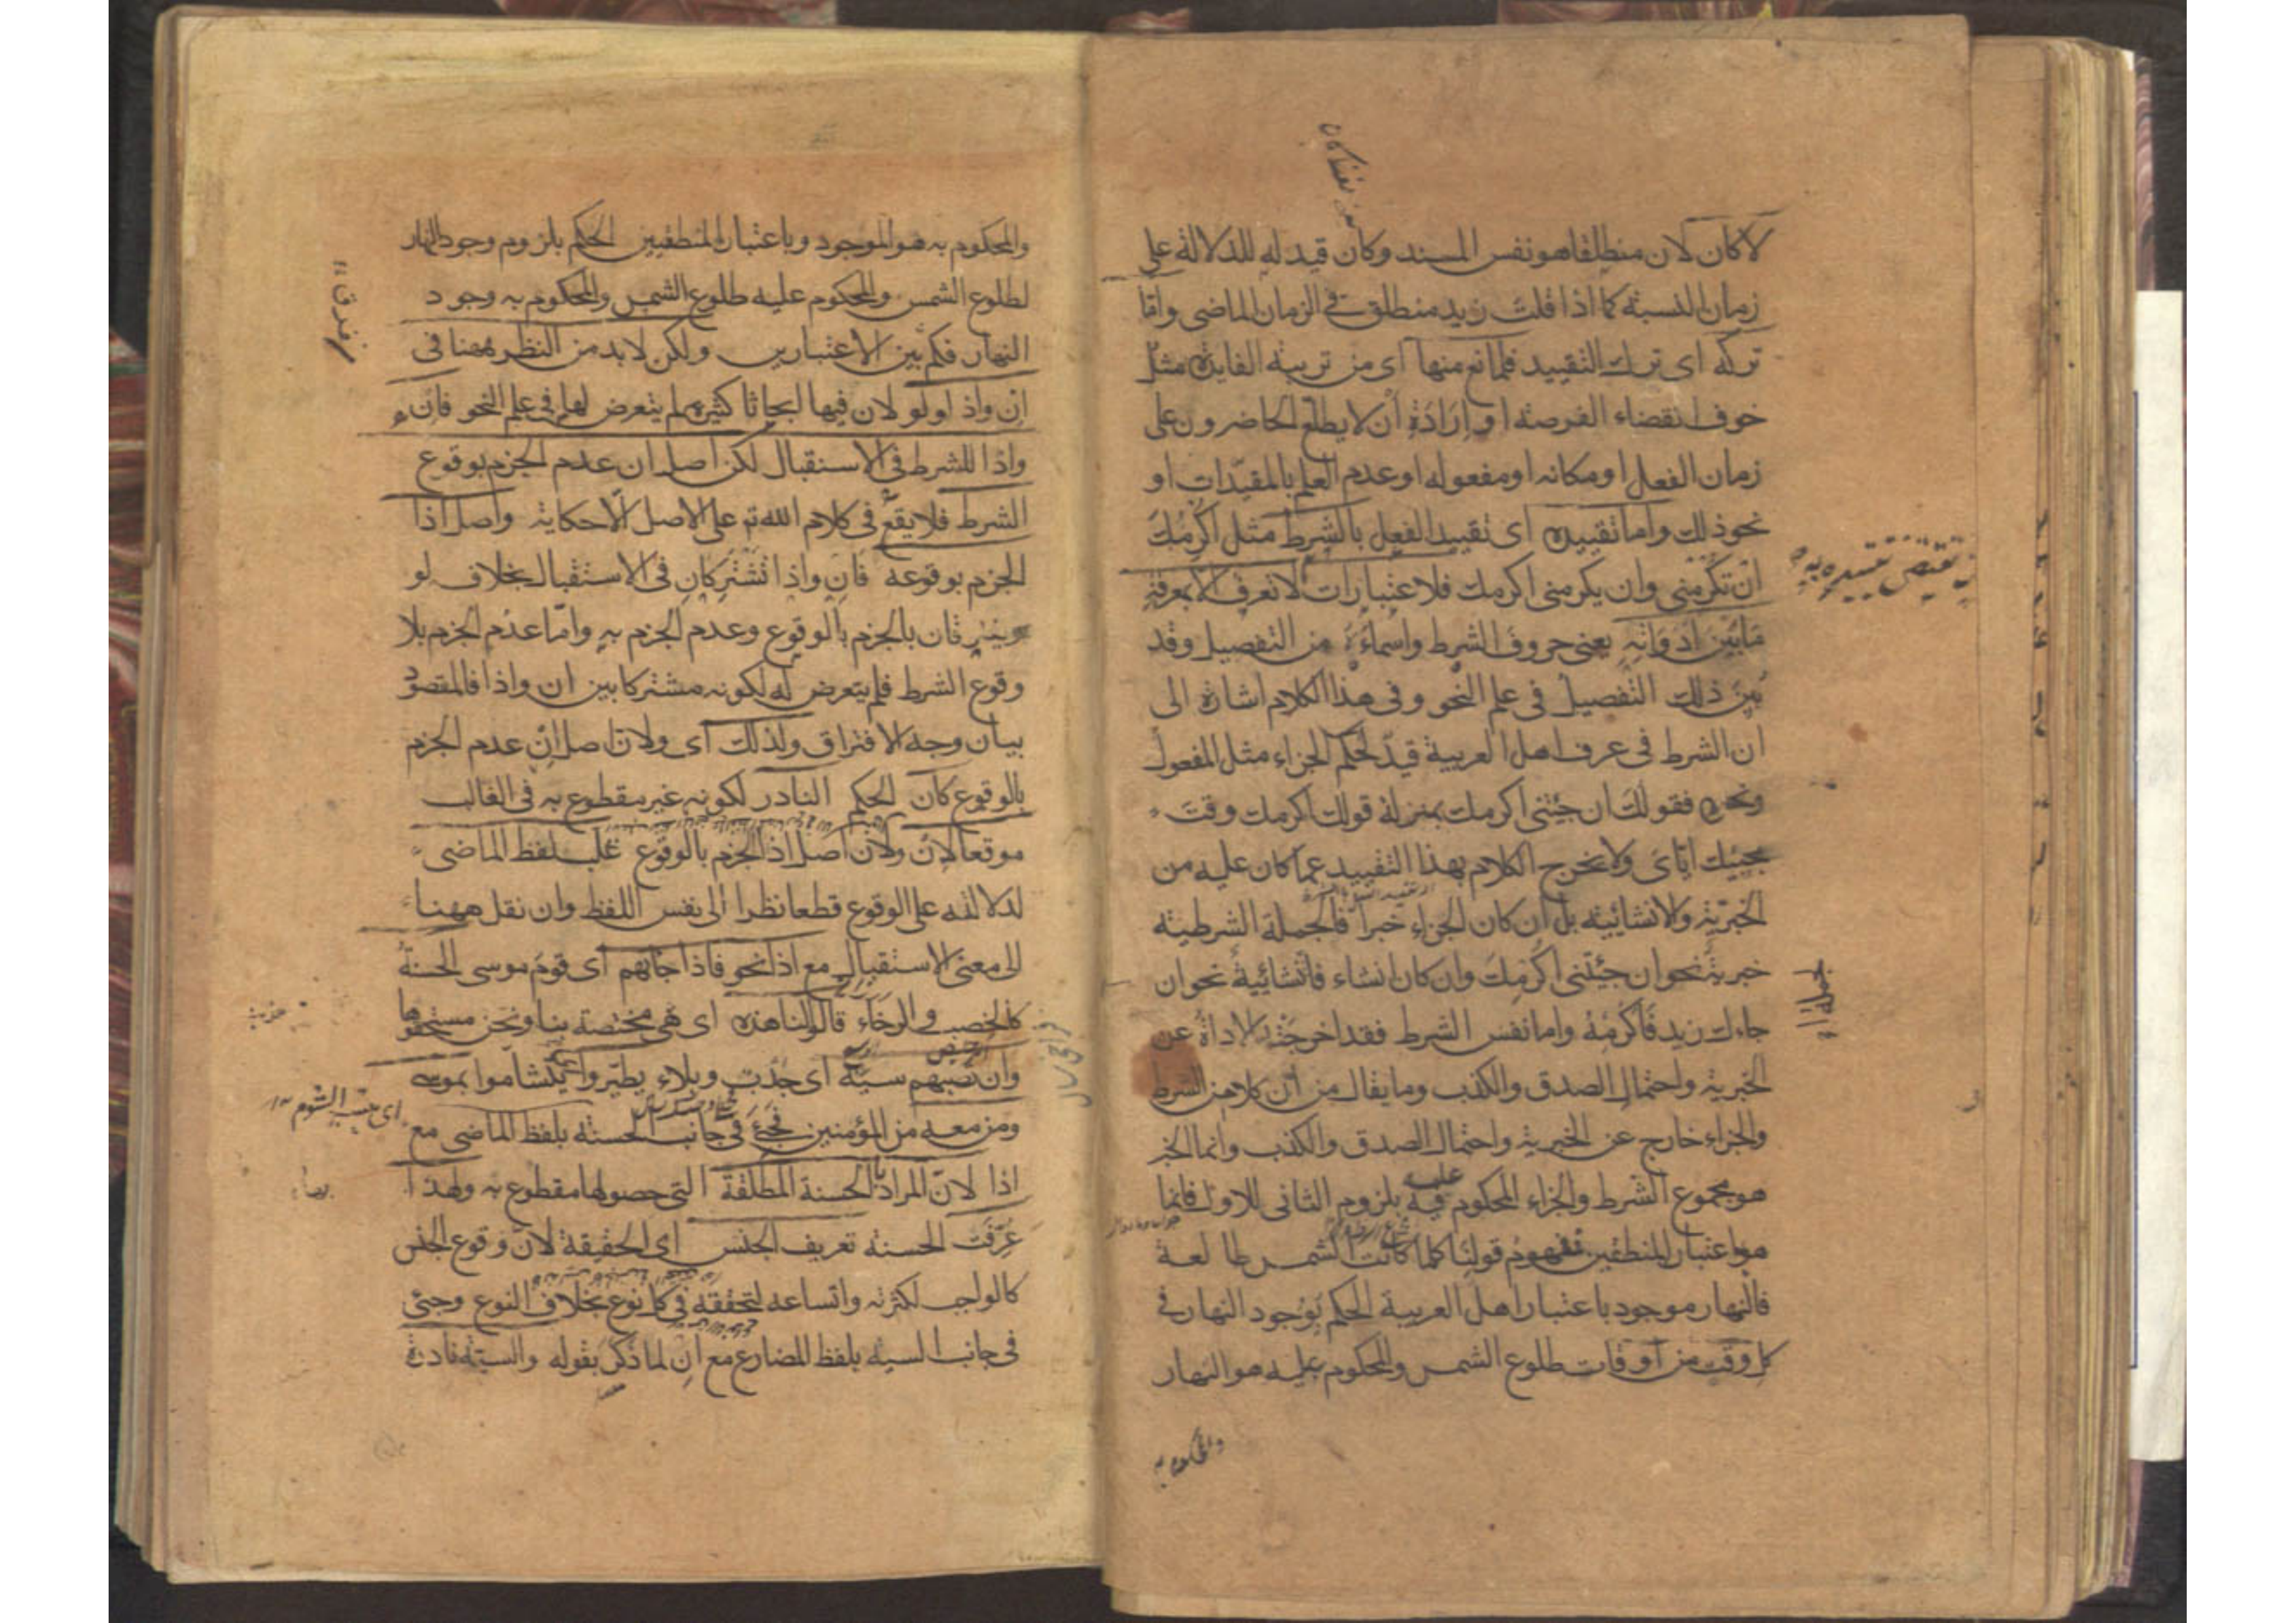 لا كان لان منطلقا هو نفس المسند وكان قيد له للدلالة على
زمان النسبة كما اذا قلت زيد منطلق في الزمان الماضى واما
تركه اى ترك التقييد فلمانع منها اى من تربية الفايدة مثل
خوف انقضاء الفرصة او ارادة ان لا يطلع الحاضرون على
زمان الفعل او مكانه او مفعوله او عدم العلم بالمقيدات او
نحو ذلك واما تقييده اى تقييد الفعل بالشرط مثل اكرمك
ان تكرمنى وان يكرمنى اكرمك فلاعتبارات لا تعرف الا بمعرفة
ما بين ادواته يعنى حروف الشرط واسماءه من التفصيل وقد
بين ذلك التفصيل فى علم النحو وفى هذا الكلام اشارة الى
ان الشرط فى عرف اهل العربية قيد لحكم الجزاء مثل المفعول
ونحوه فقولك ان جئتنى اكرمك بمنزلة قولك اكرمك وقت
مجيئك اياى ولا يخرج الكلام بهذا التقييد عما كان عليه من
الخبرية والانشائية بل ان كان الجزاء خبرا فالجملة الشرطية
خبرية نحو ان جئتنى اكرمك وان كان انشاء فانشائية نحو ان
جاءك زيد فاكرمه واما نفس الشرط فقد اخرجته الاداة عن
الخبرية واحتمال الصدق والكذب وما يقال من ان كلا من الشرط
والجزاء خارج عن الخبرية واحتمال الصدق والكذب وانما الخبر
هو مجموع الشرط والجزاء المحكوم فيه بلزوم الثانى للاول فانما
هو اعتبار المنطقيين فمفهوم قولنا كلما كانت الشمس طالعة
فالنهار موجود باعتبار اهل العربية الحكم بوجود النهار فى
كل وقت من اوقات طلوع الشمس والمحكوم عليه هو النهار
والمحكوم به
والمحكوم به هو الموجود وباعتبار المنطقيين الحكم بلزوم وجود النهار
لطلوع الشمس والمحكوم عليه طلوع الشمس والمحكوم به وجود
النهار فكم بين الاعتبارين ولكن لابد من النظر ههنا فى
ان واذا ولو لان فيها ابحاثا كثيرة لم يتعرض لها فى علم النحو فان
واذا للشرط فى الاستقبال لكن اصل ان عدم الجزم بوقوع
الشرط فلا يقع فى كلام الله تم على الاصل الا حكاية واصل اذا
الجزم بوقوعه فان واذا تشتركان فى الاستقبال بخلاف لو
ويفترقان بالجزم بالوقوع وعدم الجزم به واما عدم الجزم بلا
وقوع الشرط فلم يتعرض له لكونه مشتركا بين ان واذا فالمقصود
بيان وجه الافتراق ولذلك اى ولان اصل ان عدم الجزم
بالوقوع كان الحكم النادر لكونه غير مقطوع به فى الغالب
موقعا لان ولان اصل اذا الجزم بالوقوع غلب لفظ الماضى
لدلالته على الوقوع قطعا نظرا الى نفس اللفظ وان نقل ههنا
الى معنى الاستقبال مع اذا نحو فاذا جاتهم اى قوم موسى الحسنة
كالخصب والرخاء قالوا لنا هذه اى هى مختصة بنا ونحن مستحقوها
وان تصبهم سيئة اى جدب وبلاء يطيروا اى يتشاموا بموسى
ومن معه من المؤمنين فجئ فى جانب الحسنة بلفظ الماضى مع
اذا لان المراد بالحسنة المطلقة التى حصولها مقطوع به ولهذا
عرفت الحسنة تعريف الجنس اى الحقيقة لان وقوع الجنس
كالواجب لكثرته واتساعه لتحققه فى كل نوع بخلاف النوع وجئ
فى جانب السيئة بلفظ المضارع مع ان لما ذكر بقوله والسيئة نادرة